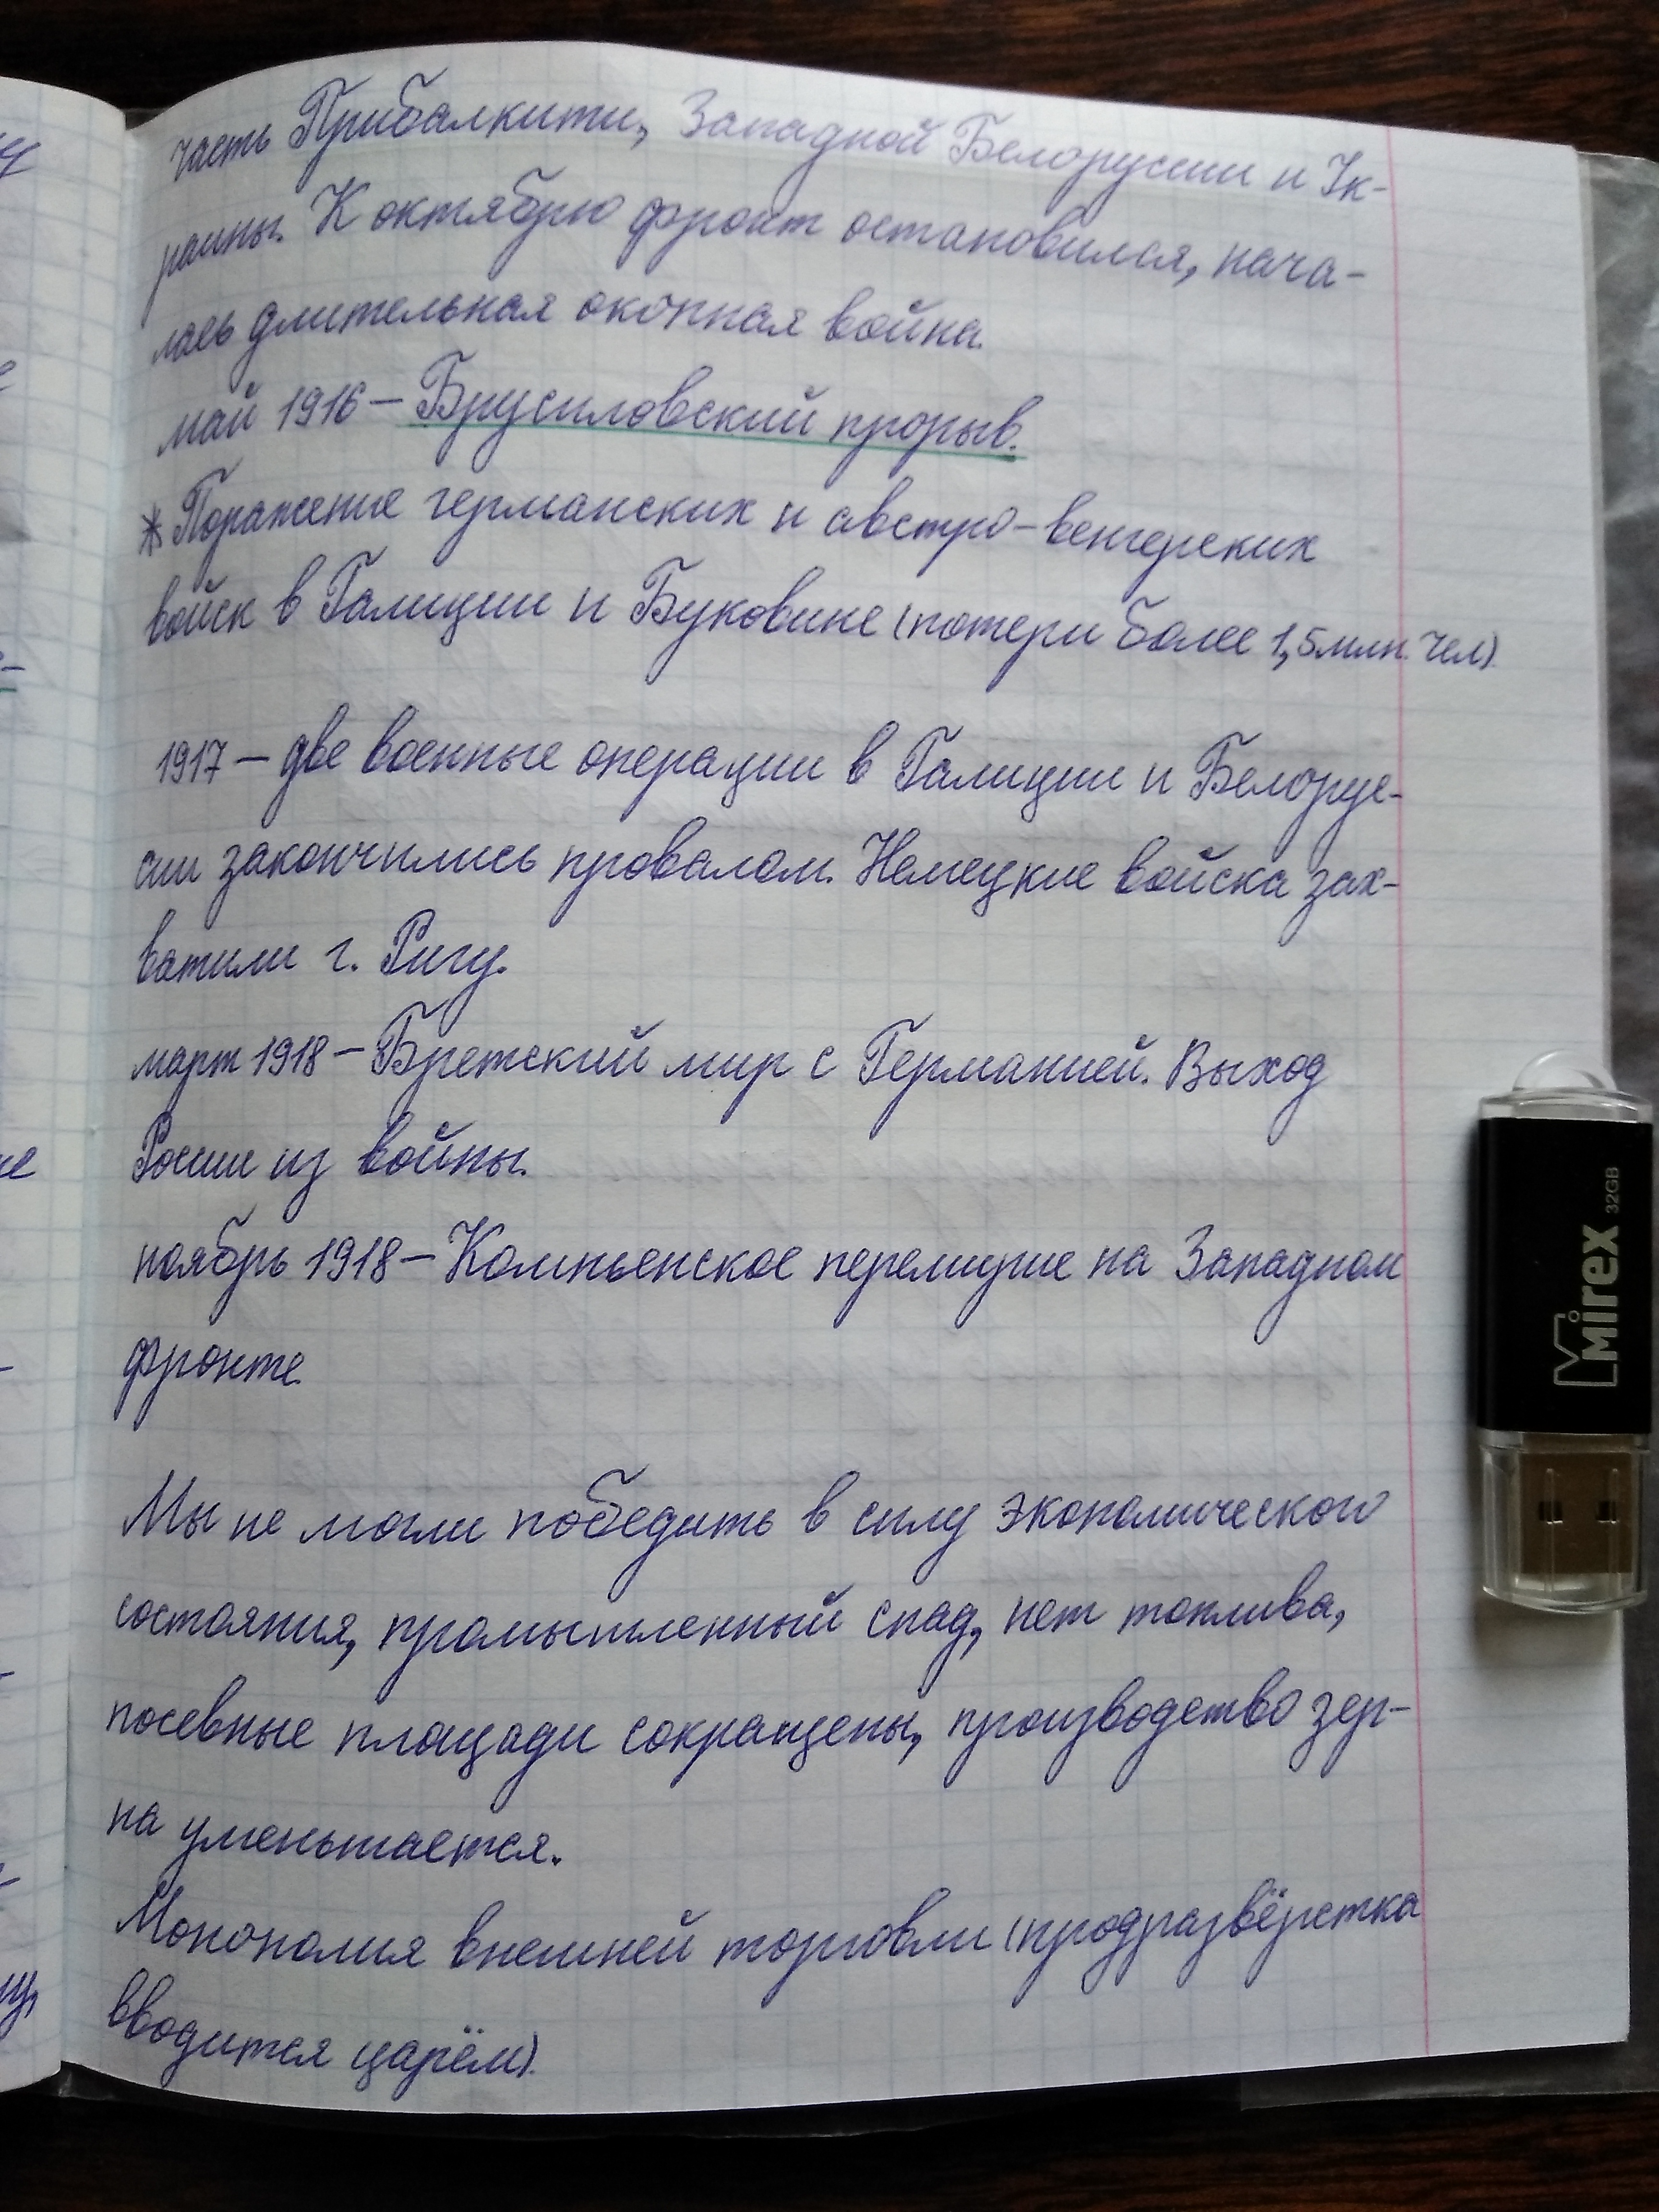 часть Прибалкити, Западной Белоруссии и Ук-
раины. К октябрю фронт остановился, нача-
лась длительная окопная война.
май 1916 – Брусиловский прорыв.
* Поражение германских и австро-венгерских
войск в Галиции и Буковине (потери более 1,5 млн. чел)
1917 – две военные операции в Галиции и Белорус-
сии закончились провалом. Немецкие войска зах-
ватили г. Ригу.
март 1918 – Бретский мир с Германией. Выход
России из войны.
ноябрь 1918 – Компьенское перемирие на Западном
фронте.
Мы не могли победить в силу экономического
состояния, промышленный спад, нет топлива,
посевные площади сокращены, производство зер-
на уменьшается.
Монополия внешней торговли (продразвёрстка
вводится царём).
Mirex 32GB